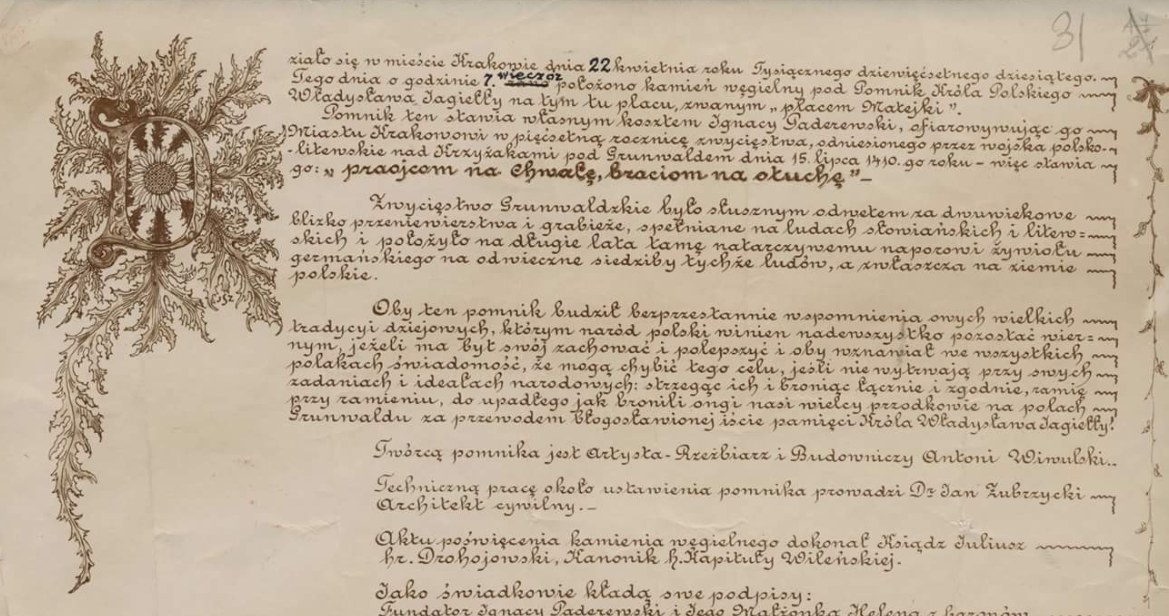 31
Działo się w mieście Krakowie dnia 22 kwietnia roku Tysiącznego dziewięćsetnego dziesiątego.
Tego dnia o godzinie 7 wieczór położono kamień węgielny pod Pomnik Króla Polskiego
Władysława Jagiełły na tym tu placu, zwanym „placem Matejki".
Pomnik ten stawia własnym kosztem Ignacy Paderewski, ofiarowywując go
Miastu Krakowowi w pięćsetną rocznicę zwycięstwa, odniesionego przez wojska polsko-
-litewskie nad Krzyżakami pod Grunwaldem dnia 15. lipca 1410.go roku – więc stawia
go: „praojcom na chwałę, braciom na otuchę"_
Zwycięstwo Grunwaldzkie było słusznym odwetem za dwuwiekowe
blizko przeniewierstwa i grabieże, spełniane na ludach słowiańskich i litew=
skich i położyło na długie lata tamę natarczywemu naporowi żywiołu
germańskiego na odwieczne siedziby tychże ludów, a zwłaszcza na ziemie
polskie.
Oby ten pomnik budził bezprzestannie wspomnienia owych wielkich
tradycyi dziejowych, którym naród polski winien nadewszystko pozostać wier=
nym, jeżeli ma byt swój zachować i polepszyć i oby wznawiał we wszystkich
polakach świadomość, że mogą chybić tego celu, jeśli nie wytrwają przy swych
zadaniach i ideałach narodowych: strzegąc ich i broniąc łącznie i zgodnie, ramię
przy ramieniu, do upadłego jak bronili ongi nasi wielcy przodkowie na polach
Grunwaldu za przewodem błogosławionej iście pamięci Króla Władysława Jagiełły!
Twórcą pomnika jest Artysta-Rzeźbiarz i Budowniczy Antoni Wiwulski..
Techniczną pracę około ustawienia pomnika prowadzi Dr Jan Zubrzycki
Architekt cywilny._
Aktu poświęcenia kamienia węgielnego dokonał Ksiądz Juliusz
hr. Drohojowski, Kanonik h. Kapituły Wileńskiej.
Jako świadkowie kładą swe podpisy:
Fundator Ignacy Paderewski i Jego Małżonka Helena z baronów